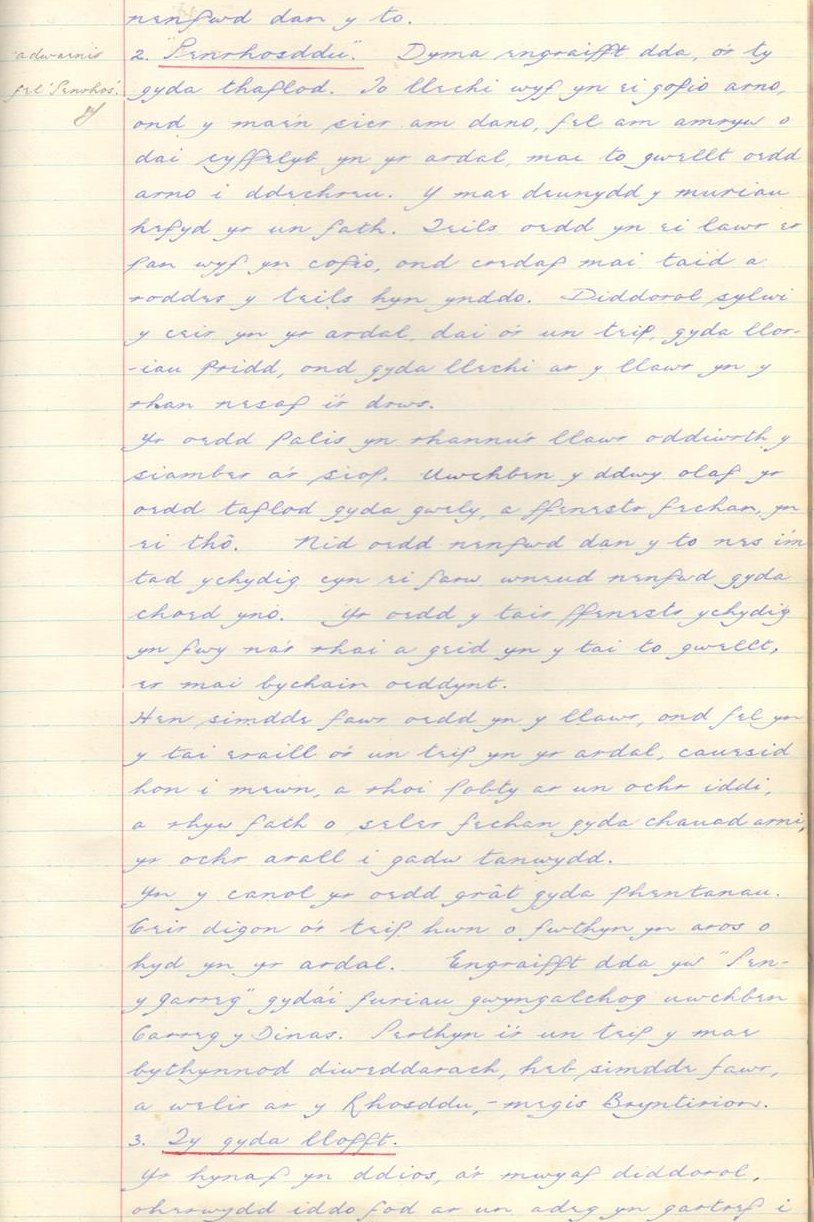 nenfwd dan y to.
adwaenir
fel 'Penrhos'.
2. "Penrhosddu". Dyma engraifft dda, o'r ty
gyda thaflod. To llechi wyf yn ei gofio arno,
ond y mae'n sicr am dano, fel am amryw o
dai cyffelyb yn yr ardal, mae to gwellt oedd
arno i ddechreu. Y mae deunydd y muriau
hefyd yr un fath. Teils oedd yn ei lawr er
pan wyf yn cofio, ond credaf mai taid a
roddes y teils hyn ynddo. Diddorol sylwi
y ceir yn yr ardal, dai o'r un teip, gyda llor-
-iau pridd, ond gyda llechi ar y llawr yn y
rhan nesaf i'r drws.
Yr oedd palis yn rhannu'r llawr oddiwrth y
siamber a'r siop. Uwchben y ddwy olaf yr
oedd taflod gyda gwely, a ffenestr fechan, yn
ei thô. Nid oedd nenfwd dan y to nes i'm
tad ychydig cyn ei farw wneud nenfwd gyda
choed yno. Yr oedd y tair ffenestr ychydig
yn fwy na'r rhai a geid yn y tai to gwellt,
er mai bychain oeddynt.
Hen simdde fawr oedd yn y llawr, ond fel yn
y tai eraill o'r un teip yn yr ardal, cauesid
hon i mewn, a rhoi pobty ar un ochr iddi,
a rhyw fath o seler fechan gyda chauad arni,
yr ochr arall i gadw tanwydd.
Yn y canol yr oedd grât gyda phentanau.
Ceir digon o'r teip hwn o fwthyn yn aros o
hyd yn yr ardal. Engraifft dda yw "Pen-
y garreg" gyda'i furiau gwyngalchog uwchben
Carreg y Dinas. Perthyn i'r un teip y mae
bythynnod diweddarach, heb simdde fawr,
a welir ar y Rhosddu, - megis Bryntirion.
3. Ty gyda llofft.
Yr hynaf yn ddios, a'r mwyaf diddorol,
oherwydd iddo fod ar un adeg yn gartref i